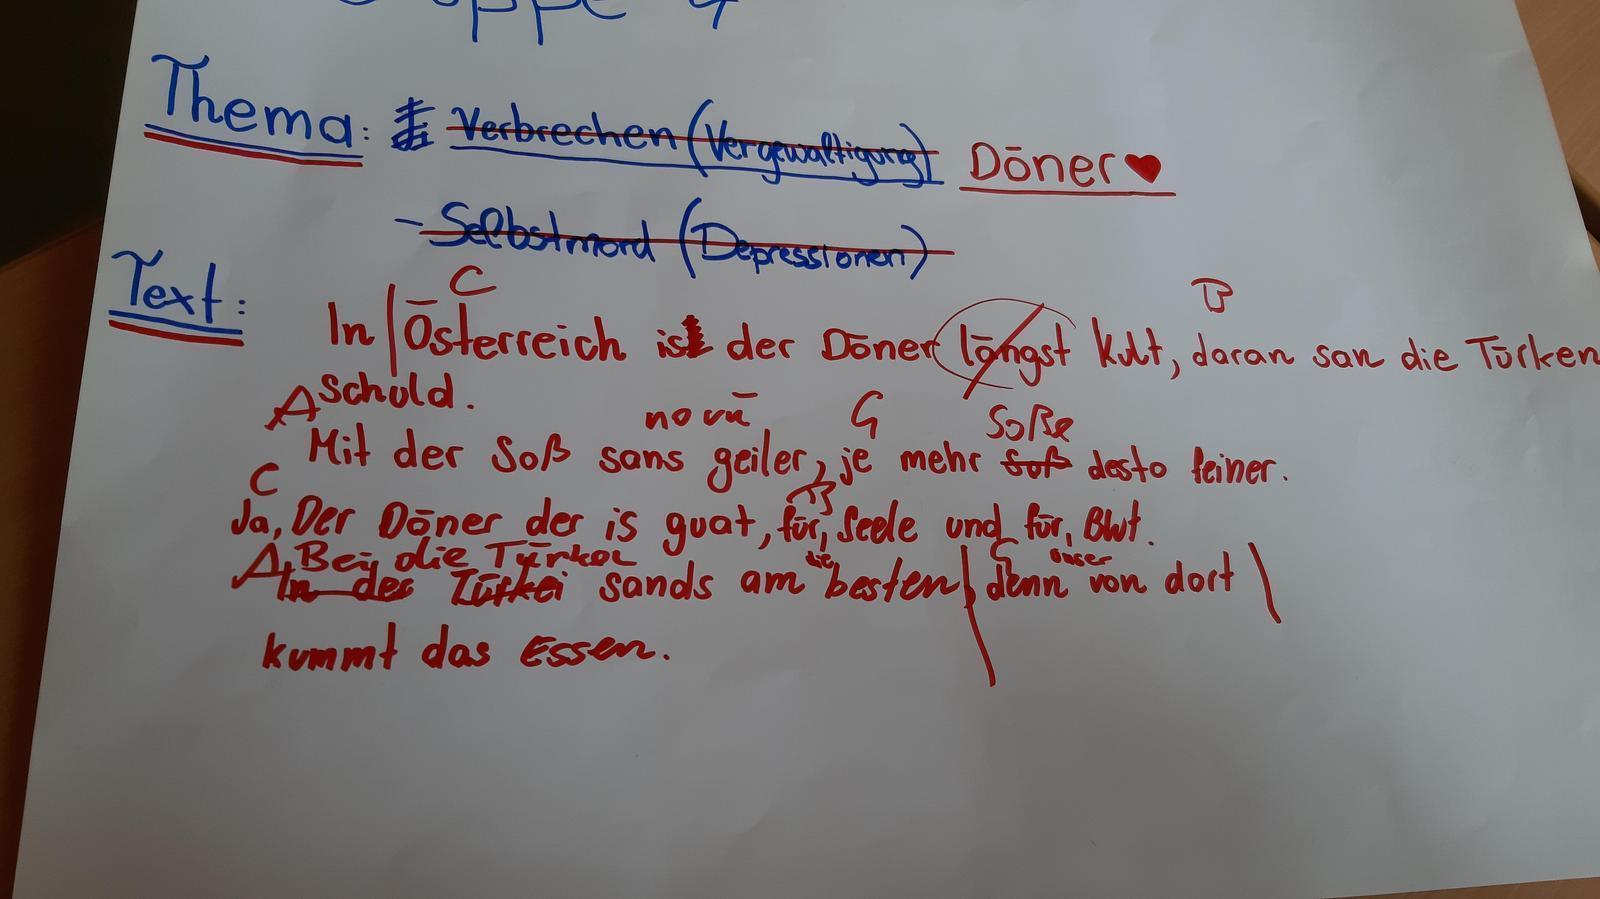 Gruppe 4
Thema: Verbrechen (Vergewaltigung) Döner ♥
- Selbstmord (Depressionen)
Text:
C B
In | Österreich ist der Döner längst kult, daran san die Türken
A schuld.
no vü G Soße
Mit der Soß sans geiler, je mehr Soß desto feiner.
C
Ja, Der Döner der is guat, für, Seele und für, Blut.
A, Bei die Türken die G unser
In der Türkei sands am besten | denn von dort |
kummt das Essen.